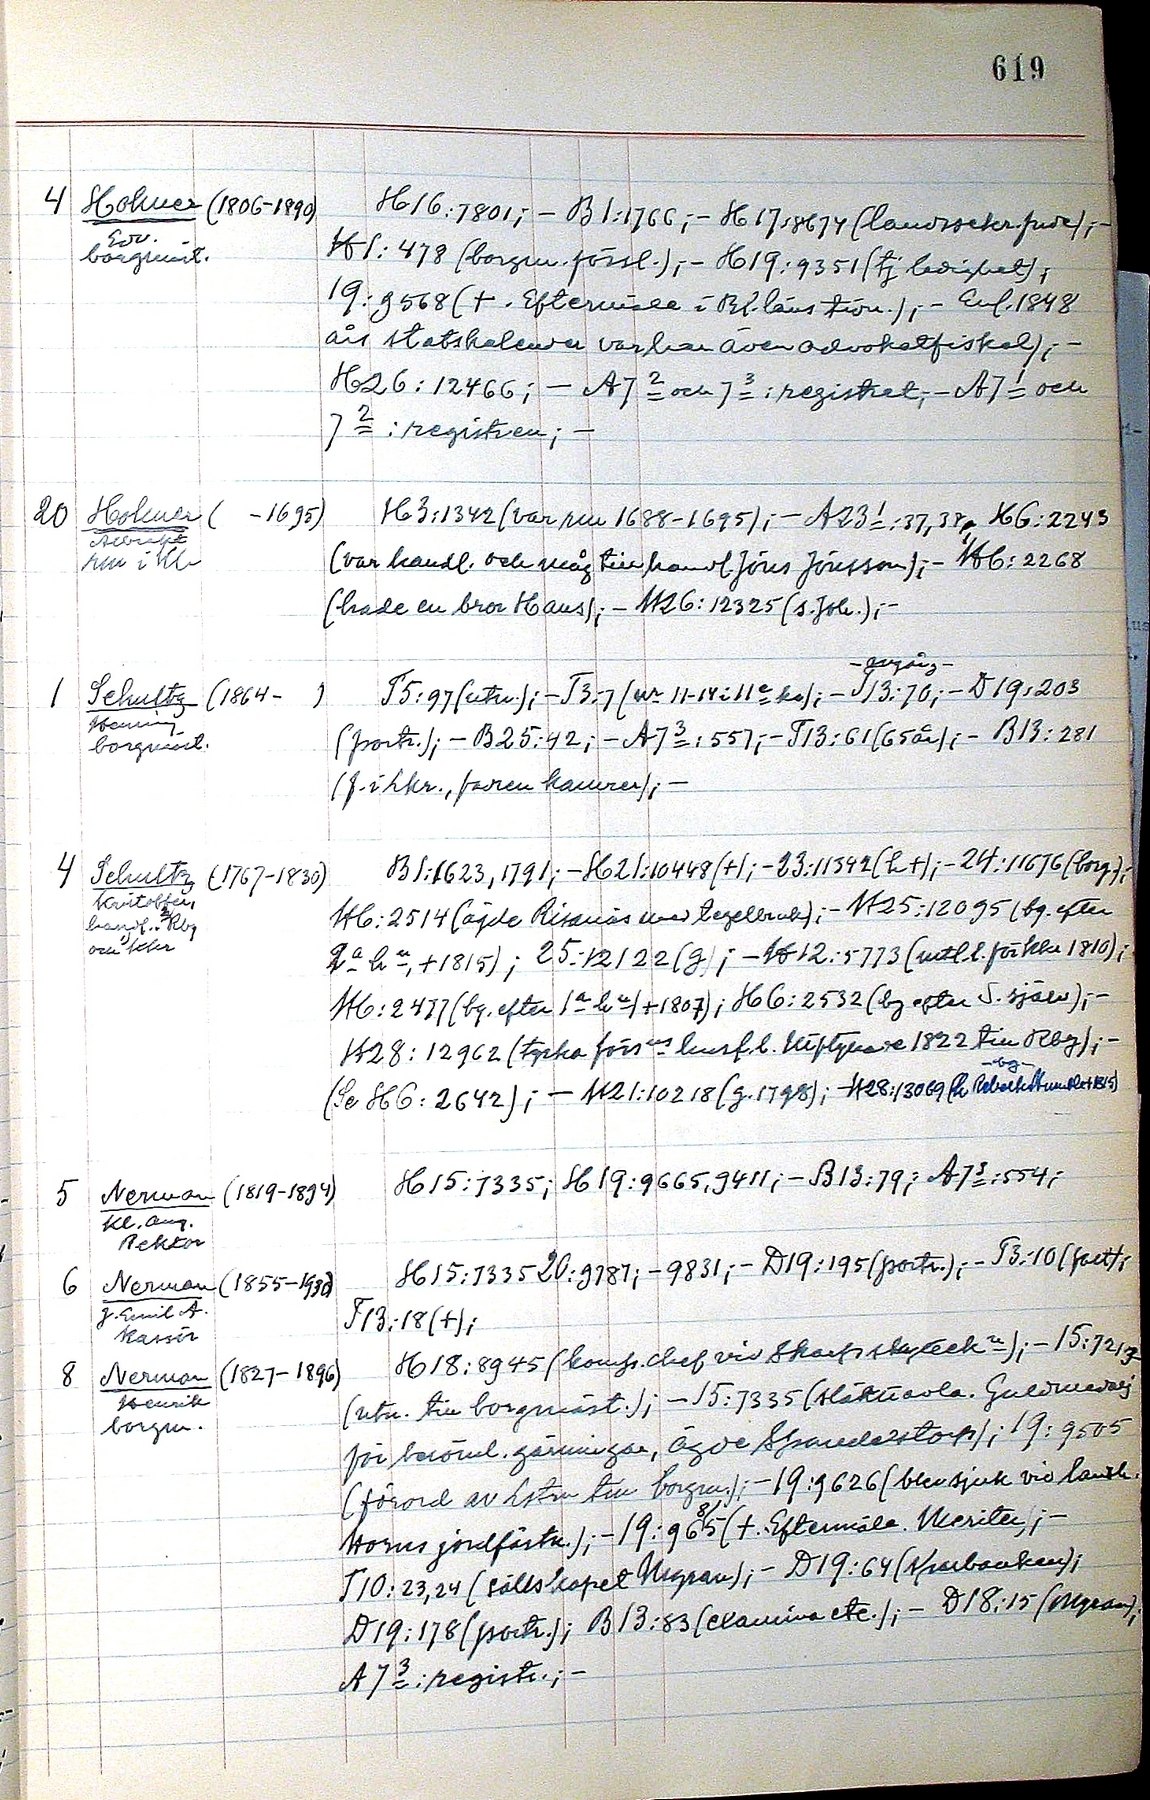 619
4 Holmer (1806-1890) H16:7801; - B1:1766; - H17:8674 (landssekr.
Edv.
borgmäst. H1:478 (borgm. förssl.); - H19:9351 (tj ledighet);
19:9568 (+. Eftermäle i Bl. läns tidn.); - Enl. 1848
års statskalender var han även advokatfiskal); -
H26:12466; - A7 2 och 7 3 : registret; - A7 1 och
7 2 : registren; -
20 Holmer ( -1695) H3:1342 (var rm 1688-1695); - A23 1 : 37, 38, H6:2243
Albrekt
rm i (var handl. och måg till handl Jöns Jönsson); - H6:2268
(hade en bror Hans); - H26:12325 (s. Joh.); -
-avgång-
1 Schultz (1864- ) T5:97 (utn.); - T3:7 (nr 11-14 i 11 e ); - T13:70; - D19:203
Henning
borgmäst. (portr.); - B25:42; - A7 3 : 557; - T13:61 (65 år); - B13:281
(f. i Lkr., fadren kamrer); -
4 Schultz (1767-1830) B1:1623, 1791; - H21:10448 (+); - 23:11342 (h +); - 24:11676 (borg.); -
Kristoffer,
handl. i Rby
och Kkr H6:2514 (ägde Risanäs med tegelbruk); - H25:12095 (bg. efter
2 a h u, +1815); 25:12122 (g); - H12:5773 ( f. för kkr 1810);
H6:2477 (bg. efter 1 a h u) +1807); H6:2532 (bg efter S. själv); -
H28:12962 (tyska förs ns 1822 till Rby); -
-bg-
(Se H6:2642); - H21:10218 (g. 1798); - H28:13069 (h +1815)
5 Nerman (1819-1894) H15:7335; H19:9665, 9411; - B13:79; A7 3 : 554;
Kl. Aug.
Rektor
6 Nerman (1855-1930) H15:7335 20:9787; - 9831; - D19:195 (portr.); - T3:10 (foto);
J. Emil A.
Kassör T13:18 (+);
8 Nerman (1827-1896) H18:8945 (komp. chef vid Skarpskytteck n); - 15:7213
Henrik
borgm. (utn. till borgmäst.); - 15:7335 (släkttavla. Guldmedalj
för berömd. gärningar, ägde Spandelstorp); 19:9505
(förord av Lstn till borgm.); - 19:9626 (blev sjuk vid landsh.
Horns jordfästn.); - 19:9685 (+. Eftermäle. Meriter); -
T10:23, 24 (sällskapet Nypan); - D19:64 (Sparbanken);
D19:178 (portr.); B13:83 (examina etc.); - D18:15 (Nypan);
A7 3 : registr.; -